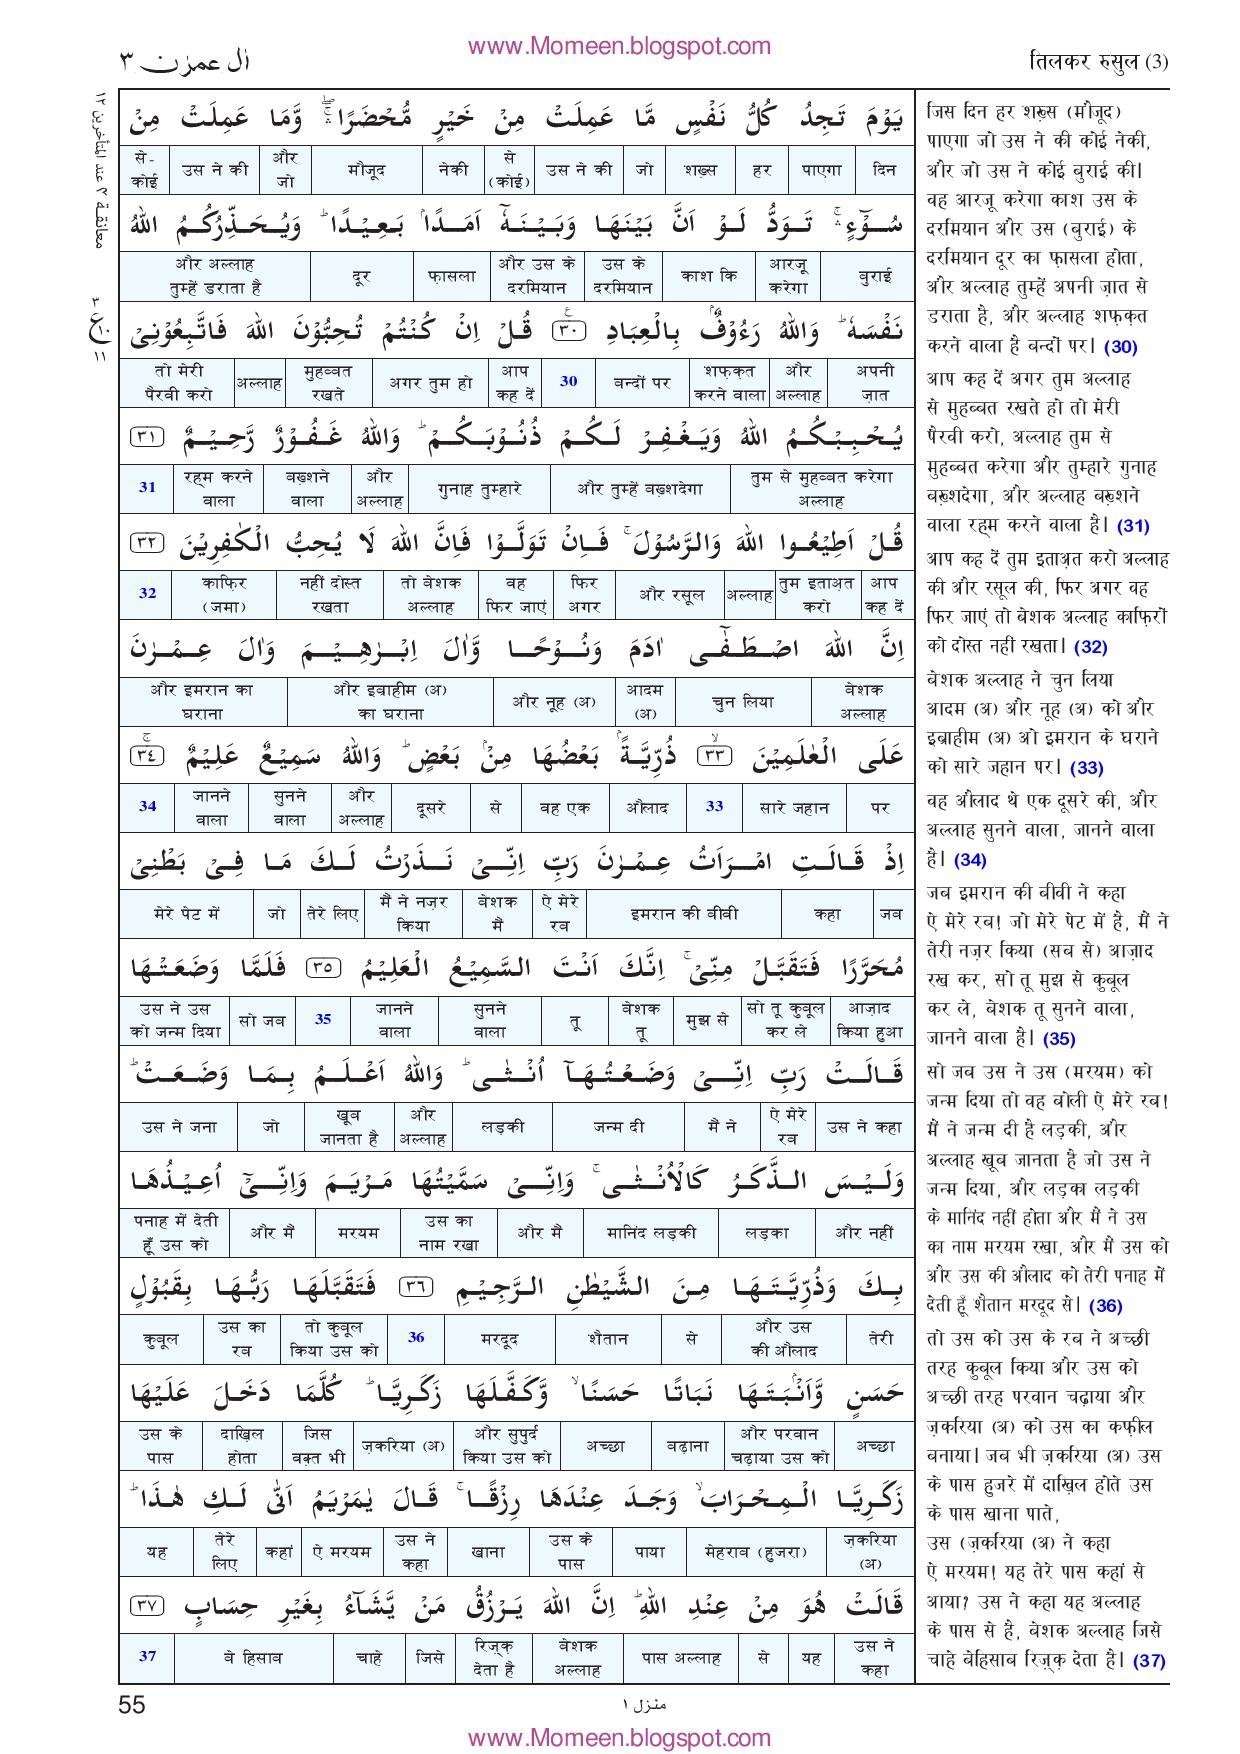 www.Momeen.blogspot.com
तिलकर रुसुल (3)
اٰل عمرٰن ٣
يَوْمَ تَجِدُ كُلُّ نَفْسٍ مَّا عَمِلَتْ مِنْ خَيْرٍ مُّحْضَرًا ۛۖۚ وَّمَا عَمِلَتْ مِنْ
दिन पाएगा हर शख़्स जो उस ने की से (कोई) नेकी मौजूद और जो उस ने की से-कोई
سُوْٓءٍ ۛۚ تَوَدُّ لَوْ اَنَّ بَيْنَهَا وَبَيْنَهٗٓ اَمَدًۢا بَعِيْدًا ؕ وَيُحَذِّرُكُمُ اللهُ
बुराई आरजू करेगा काश कि उस के दरमियान और उस के दरमियान फ़ासला दूर और अल्लाह तुम्हें डराता है
نَفْسَهٗ ؕ وَاللهُ رَءُوْفٌۢ بِالْعِبَادِ ۧ ﴿٣٠﴾ قُلْ اِنْ كُنْتُمْ تُحِبُّوْنَ اللهَ فَاتَّبِعُوْنِيْ
अपनी ज़ात और अल्लाह शफ़क़त करने वाला बन्दों पर 30 आप कह दें अगर तुम हो मुहब्बत रखते अल्लाह तो मेरी पैरवी करो
يُحْبِبْكُمُ اللهُ وَيَغْفِرْ لَكُمْ ذُنُوْبَكُمْ ؕ وَاللهُ غَفُوْرٌ رَّحِيْمٌ ﴿٣١﴾
तुम से मुहब्बत करेगा अल्लाह और तुम्हें बख़्शदेगा गुनाह तुम्हारे और अल्लाह बख़्शने वाला रहम करने वाला 31
قُلْ اَطِيْعُوا اللهَ وَالرَّسُوْلَ ۚ فَاِنْ تَوَلَّوْا فَاِنَّ اللهَ لَا يُحِبُّ الْكٰفِرِيْنَ ﴿٣٢﴾
आप कह दें तुम इताअ़त करो अल्लाह और रसूल फिर अगर वह फिर जाएं तो बेशक अल्लाह नहीं दोस्त रखता काफ़िर (जमा) 32
اِنَّ اللهَ اصْطَفٰٓى اٰدَمَ وَنُوْحًا وَّاٰلَ اِبْرٰهِيْمَ وَاٰلَ عِمْرٰنَ
बेशक अल्लाह चुन लिया आदम (अ) और नूह (अ) और इब्राहीम (अ) का घराना और इमरान का घराना
عَلَى الْعٰلَمِيْنَ ۙ ﴿٣٣﴾ ذُرِّيَّةًۢ بَعْضُهَا مِنْۢ بَعْضٍ ؕ وَاللهُ سَمِيْعٌ عَلِيْمٌ ۚ ﴿٣٤﴾
पर सारे जहान 33 औलाद वह एक से दूसरे और अल्लाह सुनने वाला जानने वाला 34
اِذْ قَالَتِ امْرَاَتُ عِمْرٰنَ رَبِّ اِنِّيْ نَذَرْتُ لَكَ مَا فِيْ بَطْنِيْ
जब कहा इमरान की बीवी ऐ मेरे रब बेशक मैं मैं ने नज़र किया तेरे लिए जो मेरे पेट में
مُحَرَّرًا فَتَقَبَّلْ مِنِّيْ ۚ اِنَّكَ اَنْتَ السَّمِيْعُ الْعَلِيْمُ ﴿٣٥﴾ فَلَمَّا وَضَعَتْهَا
आज़ाद किया हुआ सो तू कुबूल कर ले मुझ से बेशक तू तू सुनने वाला जानने वाला 35 सो जब उस ने उस को जन्म दिया
قَالَتْ رَبِّ اِنِّيْ وَضَعْتُهَآ اُنْثٰى ؕ وَاللهُ اَعْلَمُ بِمَا وَضَعَتْ ؕ
उस ने कहा ऐ मेरे रब मैं ने जन्म दी लड़की और अल्लाह खूब जानता है जो उस ने जना
وَلَيْسَ الذَّكَرُ كَالْاُنْثٰى ۚ وَاِنِّيْ سَمَّيْتُهَا مَرْيَمَ وَاِنِّيْٓ اُعِيْذُهَا
और नहीं लड़का मानिंद लड़की और मैं उस का नाम रखा मरयम और मैं पनाह में देती हूँ उस को
بِكَ وَذُرِّيَّتَهَا مِنَ الشَّيْطٰنِ الرَّجِيْمِ ﴿٣٦﴾ فَتَقَبَّلَهَا رَبُّهَا بِقَبُوْلٍ
तेरी और उस की औलाद से शैतान मरदूद 36 तो कुबूल किया उस को उस का रब कुबूल
حَسَنٍ وَّاَنْۢبَتَهَا نَبَاتًا حَسَنًا ۙ وَّكَفَّلَهَا زَكَرِيَّا ؕ كُلَّمَا دَخَلَ عَلَيْهَا
अच्छा और परवान चढ़ाया उस को बढ़ाना अच्छा और सुपुर्द किया उस को ज़करिया (अ) जिस वक़्त भी दाख़िल होता उस के पास
زَكَرِيَّا الْمِحْرَابَ ۙ وَجَدَ عِنْدَهَا رِزْقًا ۚ قَالَ يٰمَرْيَمُ اَنّٰى لَكِ هٰذَا ؕ
ज़करिया (अ) मेहराब (हुजरा) पाया उस के पास खाना उस ने कहा ऐ मरयम कहां तेरे लिए यह
قَالَتْ هُوَ مِنْ عِنْدِ اللهِ ؕ اِنَّ اللهَ يَرْزُقُ مَنْ يَّشَآءُ بِغَيْرِ حِسَابٍ ﴿٣٧﴾
उस ने कहा यह से पास अल्लाह बेशक अल्लाह रिज़्क़ देता है जिसे चाहे बे हिसाब 37
जिस दिन हर शख़्स (मौजूद)
पाएगा जो उस ने की कोई नेकी,
और जो उस ने कोई बुराई की।
वह आरजू करेगा काश उस के
दरमियान और उस (बुराई) के
दरमियान दूर का फ़ासला होता,
और अल्लाह तुम्हें अपनी ज़ात से
डराता है, और अल्लाह शफ़क़त
करने वाला है बन्दों पर। (30)
आप कह दें अगर तुम अल्लाह
से मुहब्बत रखते हो तो मेरी
पैरवी करो, अल्लाह तुम से
मुहब्बत करेगा और तुम्हारे गुनाह
बख़्शदेगा, और अल्लाह बख़्शने
वाला रहम करने वाला है। (31)
आप कह दें तुम इताअ़त करो अल्लाह
की और रसूल की, फिर अगर वह
फिर जाएं तो बेशक अल्लाह काफ़िरों
को दोस्त नहीं रखता। (32)
बेशक अल्लाह ने चुन लिया
आदम (अ) और नूह (अ) को और
इब्राहीम (अ) ओ इमरान के घराने
को सारे जहान पर। (33)
वह औलाद थे एक दूसरे की, और
अल्लाह सुनने वाला, जानने वाला
है। (34)
जब इमरान की बीवी ने कहा
ऐ मेरे रब! जो मेरे पेट में है, मैं ने
तेरी नज़र किया (सब से) आज़ाद
रख कर, सो तू मुझ से कुबूल
कर ले, बेशक तू सुनने वाला,
जानने वाला है। (35)
सो जब उस ने उस (मरयम) को
जन्म दिया तो वह बोली ऐ मेरे रब!
मैं ने जन्म दी है लड़की, और
अल्लाह खूब जानता है जो उस ने
जन्म दिया, और लड़का लड़की
के मानिंद नहीं होता और मैं ने उस
का नाम मरयम रखा, और मैं उस को
और उस की औलाद को तेरी पनाह में
देती हूँ शैतान मरदूद से। (36)
तो उस को उस के रब ने अच्छी
तरह कुबूल किया और उस को
अच्छी तरह परवान चढ़ाया और
ज़करिया (अ) को उस का कफ़ील
बनाया। जब भी ज़करिया (अ) उस
के पास हुजरे में दाख़िल होते उस
के पास खाना पाते,
उस (ज़करिया (अ) ने कहा
ऐ मरयम! यह तेरे पास कहां से
आया? उस ने कहा यह अल्लाह
के पास से है, बेशक अल्लाह जिसे
चाहे बेहिसाब रिज़्क़ देता है। (37)
معانقة ٣ عند المتأخرين ١٢
٣
ع
١٠
١١
55
منزل ١
www.Momeen.blogspot.com